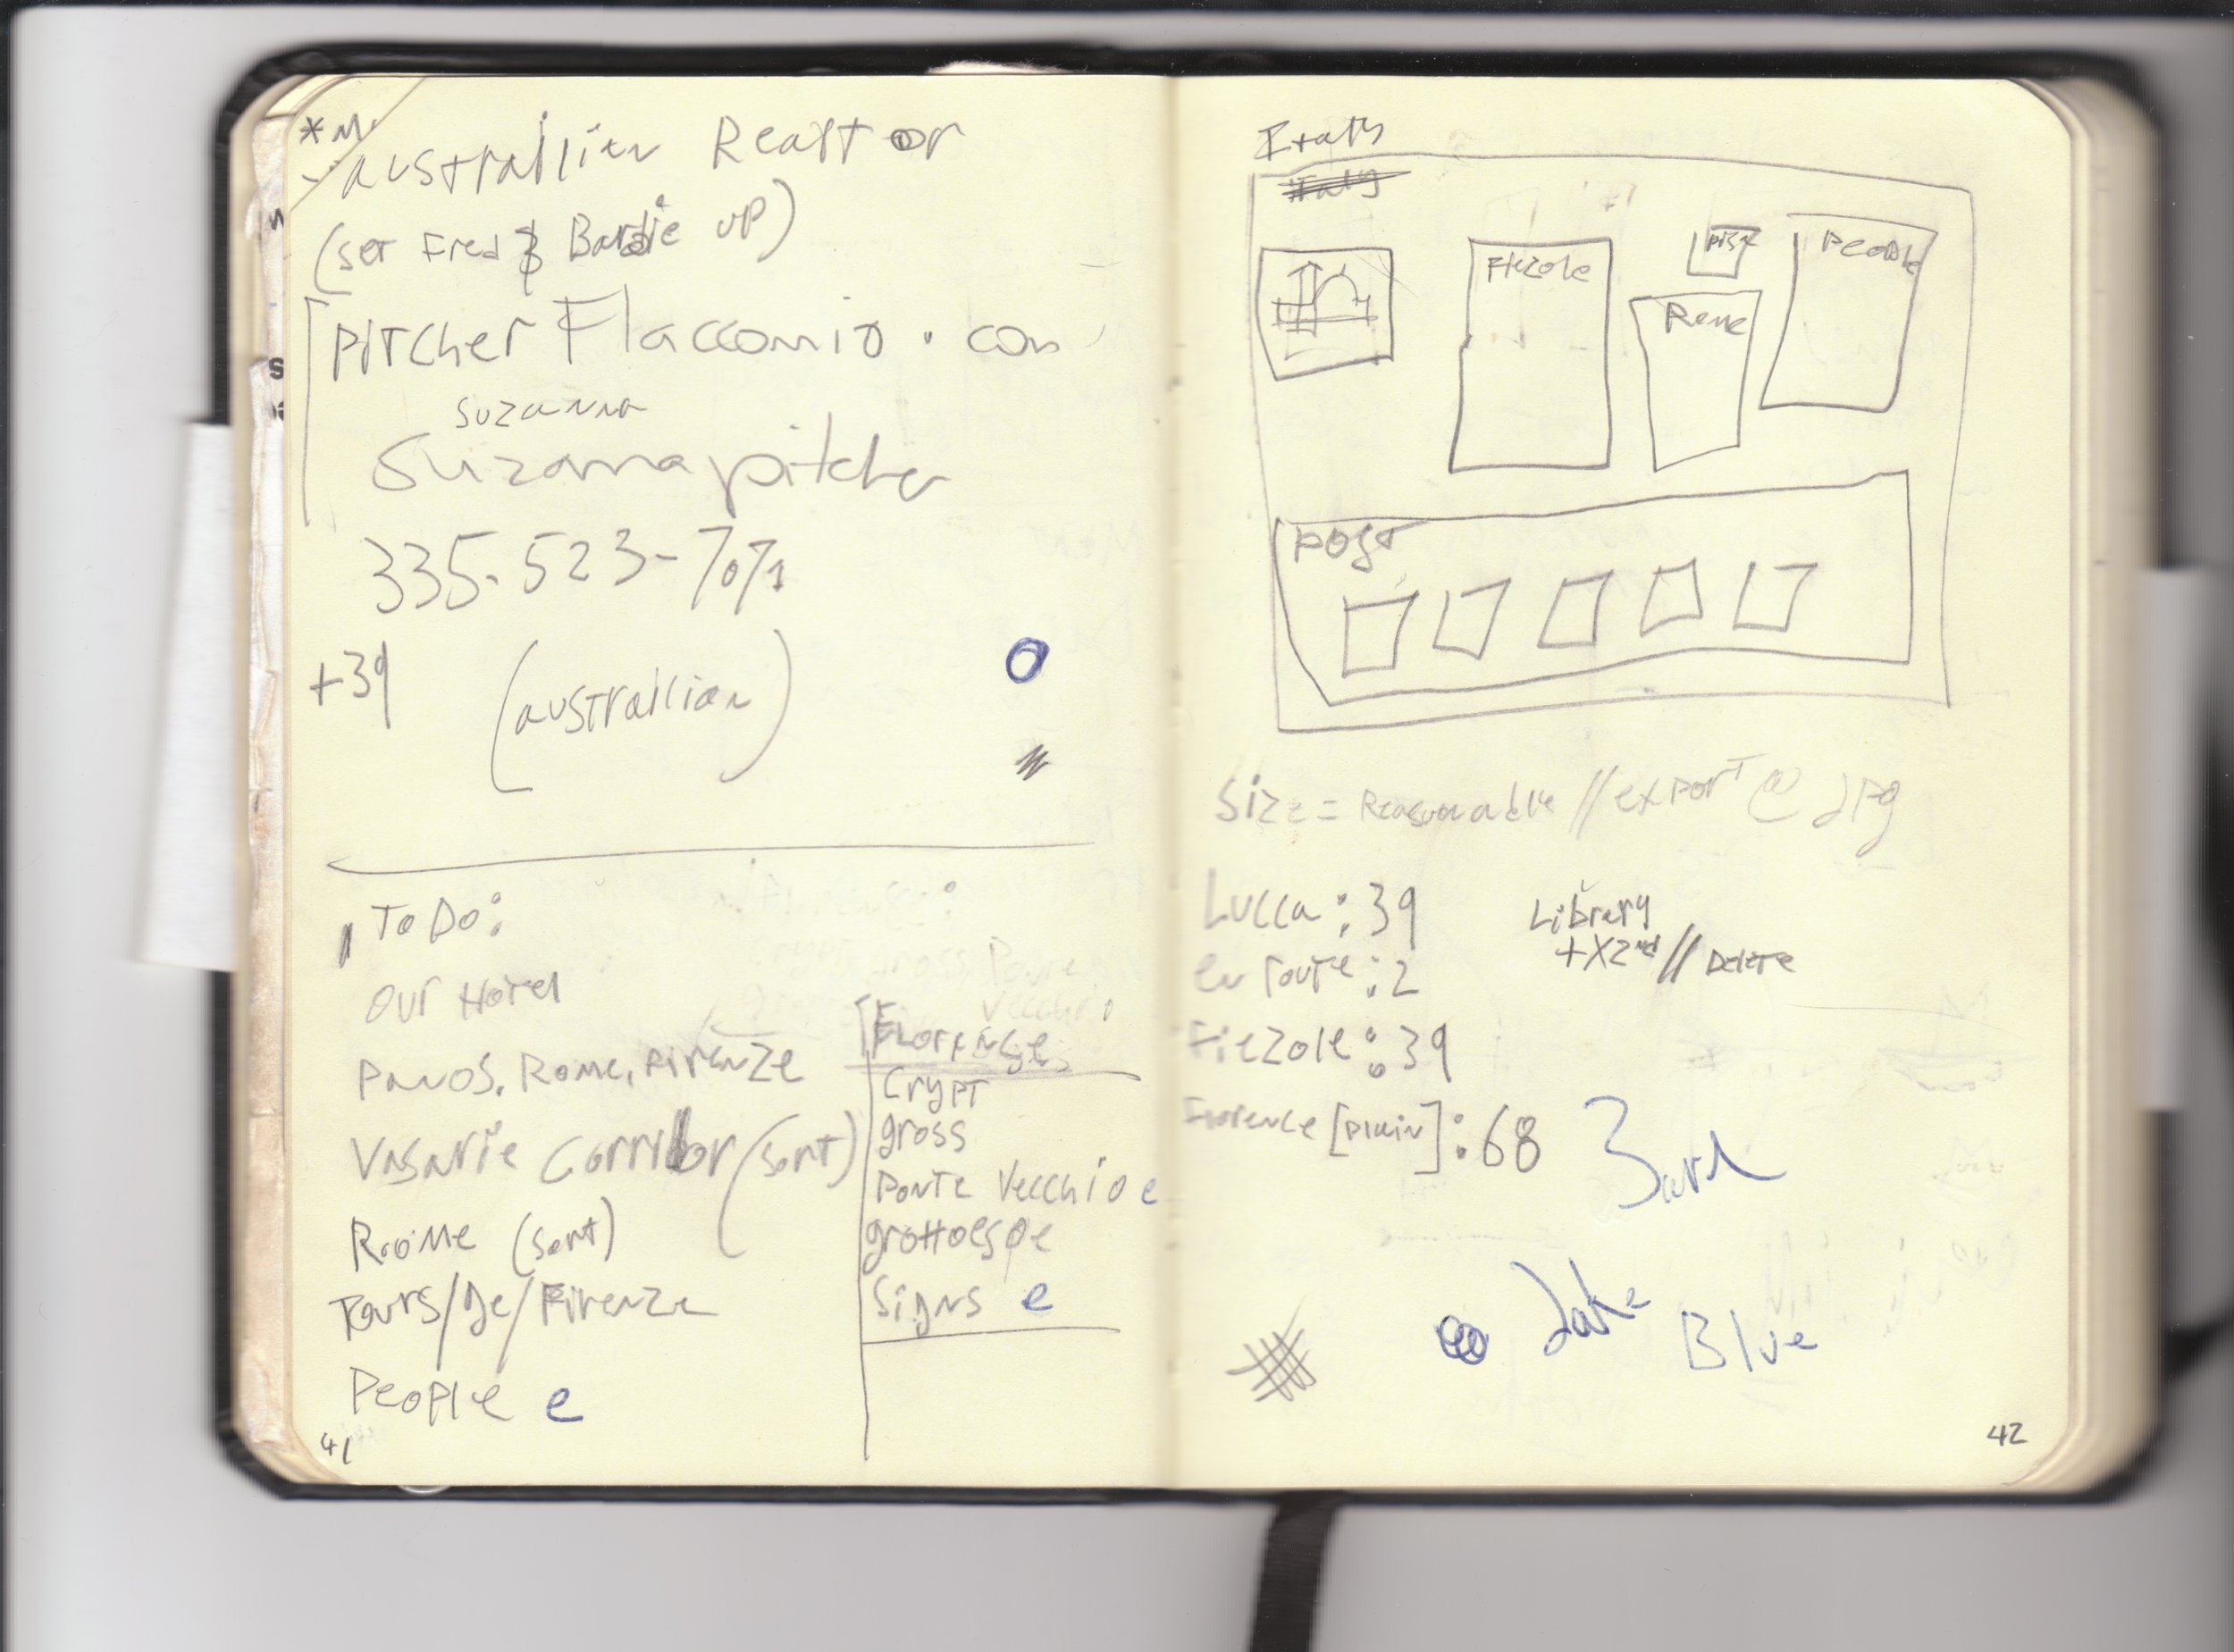 *M.
australlien Realtor
(set Fred & Bardie up)
PITCHER Flaccomio . com
suzanna
Suzanna pitcher
335-523-7071
+39
(australlian)
To Do:
our Hotel
PANOS, ROME, FIRENZE
Vasarie Corridor (sort)
Rome (sort)
Tours/de/Firenze
People e
Florence
Crypt
gross
Ponte Vecchio e
grottoesque
Signs e
41
Italy
Italy
Fiezole
Pisa
Rome
People
POST
Size = Reasonable // export @ jpg
Lucca : 39
Library
+X2nd // Delete
en route : 2
Fiezole : 39
Florence [plain] : 68
date
Blue
42